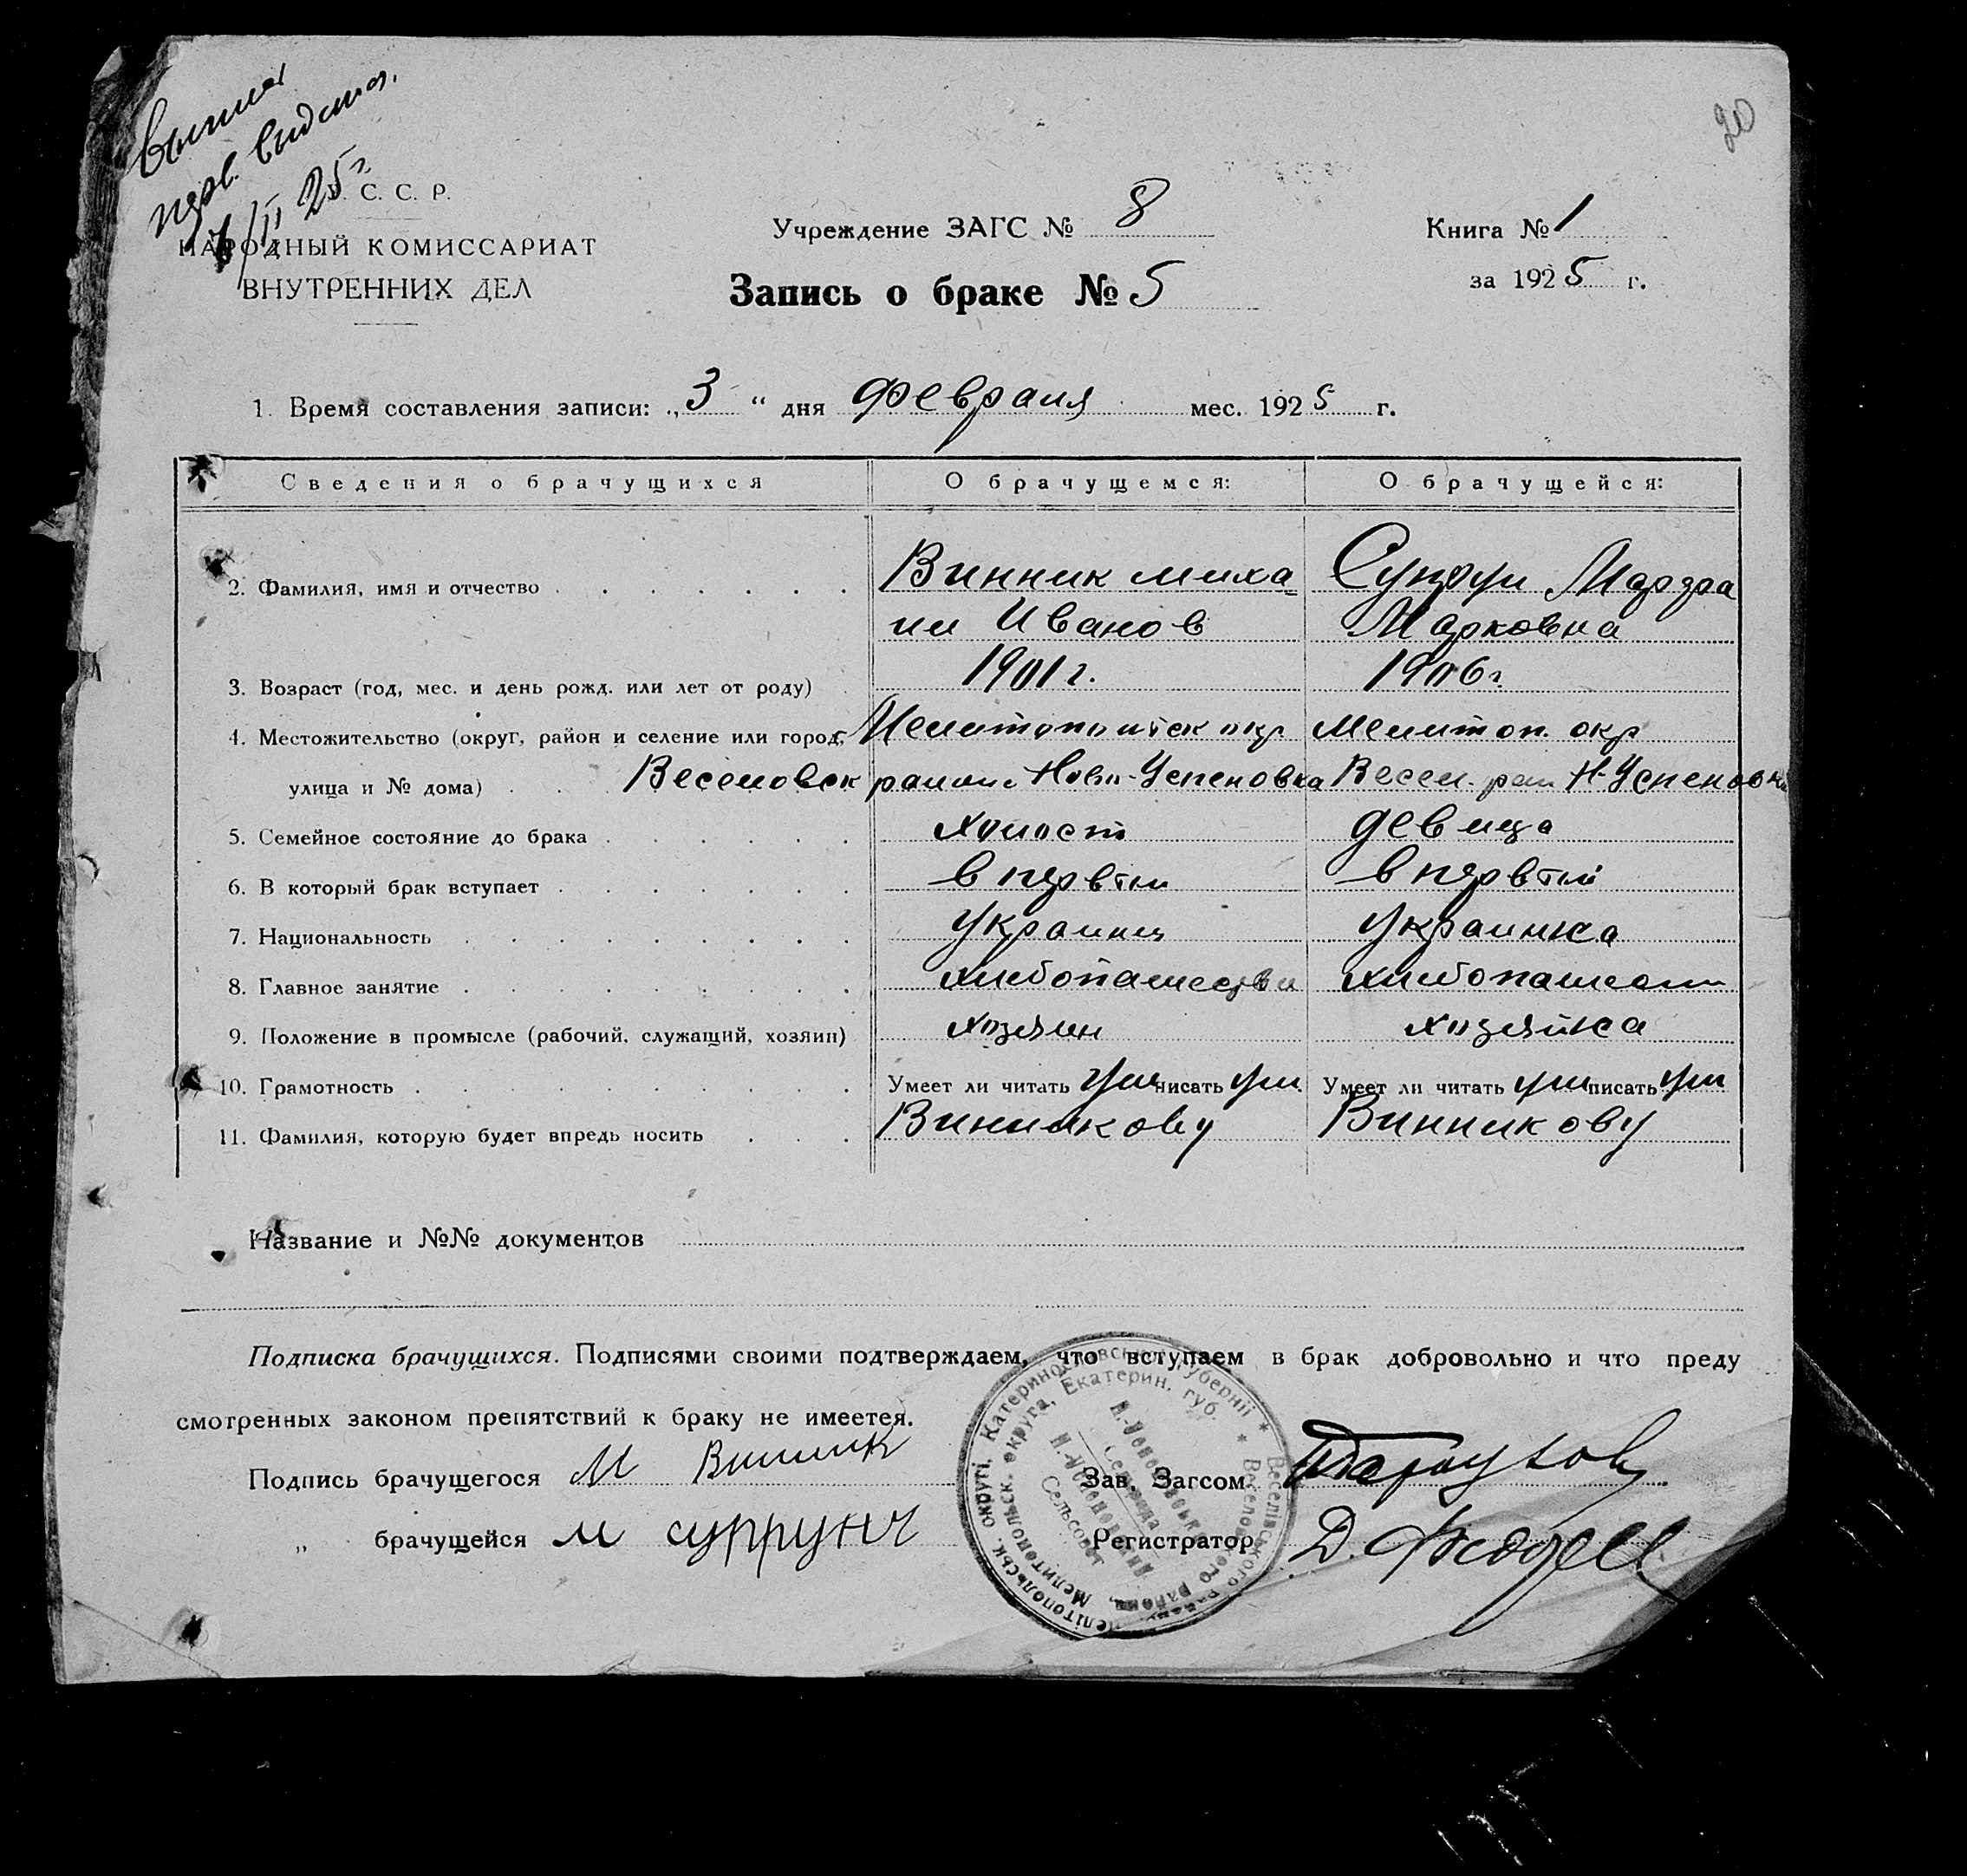 20
25 г
С. С. Р.
НАРОДНЫЙ КОМИССАРИАТ
ВНУТРЕННИХ ДЕЛ
Учреждение ЗАГС № 8
Книга № 1
Запись о браке № 5
за 1925 г.
1. Время составления записи: „3“ дня февраля мес. 1925 г.
Сведения о брачущихся О брачущемся: О брачущейся:
2. Фамилия, имя и отчество Винник Миха
ил Иванов Марковна
3. Возраст (год, мес. и день рожд. или лет от роду) 1901 г. 1906 г
4. Местожительство (округ, район и селение или город, Мелитопольск окр Мелитоп. окр
улица и № дома) Веселовск район Ново-Успеновка Весел. рай Н-Успеновка
5. Семейное состояние до брака холост девица
6. В который брак вступает в первый в первый
7. Национальность Украинец Украинка
8. Главное занятие
9. Положение в промысле (рабочий, служащий, хозяин) хозяин хозяйка
10. Грамотность Умеет ли читать ум писать ум Умеет ли читать ум писать ум
11. Фамилия, которую будет впредь носить Винникову Винникову
Название и №№ документов
Подписка брачущихся. Подписями своими подтверждаем, что вступаем в брак добровольно и что преду
смотренных законом препятствий к браку не имеется.
Подпись брачущегося М Винник Зав. Загсом
„ брачущейся м суррунг Регистратор Д.
Екатерин. губ.
Сельсовет